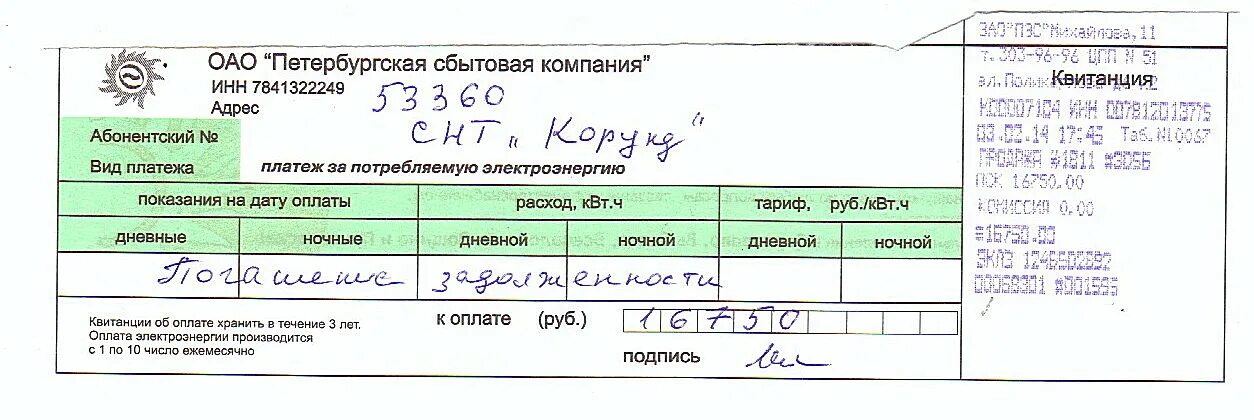 ОАО "Петербургская сбытовая компания"
ИНН 7841322249
Адрес
53360
СНТ „Корунд"
Абонентский №
Вид платежа
платеж за потребляемую электроэнергию
показания на дату оплаты расход, кВт.ч тариф, руб./кВт.ч
дневные ночные дневной ночной дневной ночной
Погашение задолженности
Квитанции об оплате хранить в течение 3 лет.
Оплата электроэнергии производится
с 1 по 10 число ежемесячно
к оплате (руб.) 16750
подпись
ЗАО"ПЭС"Михайлова,11
т.303-96-96 ЦПП N 51
Квитанция
К00007104 ИНН 007812013775
03.02.14 17:45 Таб.N10067
ПРОДАЖА #1811 #3056
ПСК 16750.00
КОМИССИЯ 0.00
≡16750.00
ЭКЛЗ 1246502692
00068301 #001595